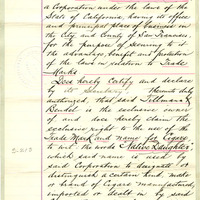 a Corporation under the laws of the
State of California, having its office
and principal place of business in
the City and County of San Francisco
for the purpose of securing to it
the advantage, benefit and protection
of the laws in relation to Trade
Marks
Does hereby Certify and declare
by its Secretary, thereunto duly
authorized, that said Tillmann &
Bendel is the exclusive owner
of and does hereby claim the
exclusive right to the use of the
Trade Mark and name for Cigars
to wit: the words "Native Daughter",
which said name is used by
said Corporation to designate or
distinguish a certain kind, make
or brand of Cigars manufactured,
imported or dealt in by said